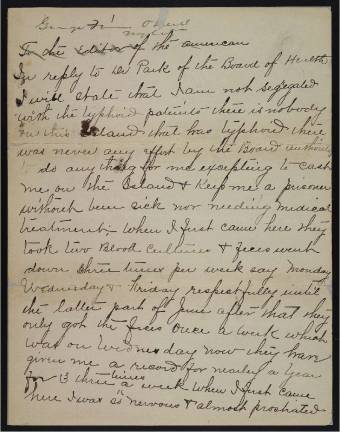 George Fr'
To the Editor of the american
In reply to Dr Park of the Board of Health
I will state that I am not segregated
with the typhoid patients there is nobody
on this Island that has typhoid there
was never any effort by the Board authority
to do anything for me excepting to cast
me on the Island & Keep me a prisoner
without been sick nor needing medical
treatment. when I first came here they
took two Blood Cultures & feces went
down three times per week say Monday
Wednesday & Friday respectfully until
the latter part of June after that they
only got the feces once a week which
was on Wednesday now they have
given me a record for nearly a year
for 13 three times a week when I first came
here I was so nervous & almost prostrated